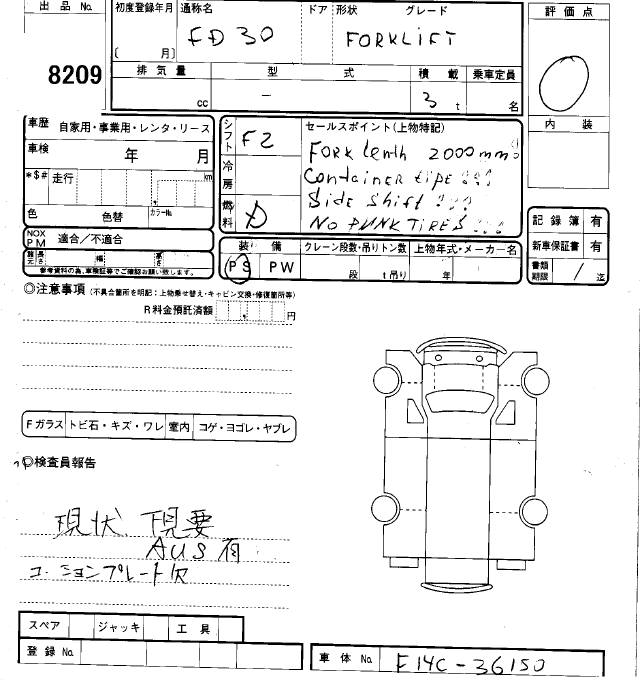 出品 No.
8209
初度登録年月
〔 月〕
通称名
FD30
ドア
形状
グレード
FORKLIFT
排気量
cc
型式
-
積載
3 t
乗車定員
名
評価点
内装
車歴 自家用・事業用・レンタ・リース
車検 年 月
*$# 走行 km
色 色替 カラーNo.
NOX PM 適合/不適合
長さ 幅 高さ
参考資料の為、車検証等でご確認お願い致します。
シフト F2
冷房
燃料 D
セールスポイント(上物特記)
FORK lenth 2000mm
Container tipe
Side Shift
NO PUNK TIRES
装備
PS PW
クレーン段数・吊りトン数
段 t吊り
上物年式・メーカー名
年
記録簿 有
新車保証書 有
書類期限 / 迄
◎注意事項 (不具合箇所を明記:上物乗せ替え・キャビン交換・修復箇所等)
R料金預託済額 円
Fガラス トビ石・キズ・ワレ 室内 コゲ・ヨゴレ・ヤブレ
◎検査員報告
現状 下見要
AUS有
コーションプレート欠
スペア ジャッキ 工具
登録 No.
車体 No. F14C-36150